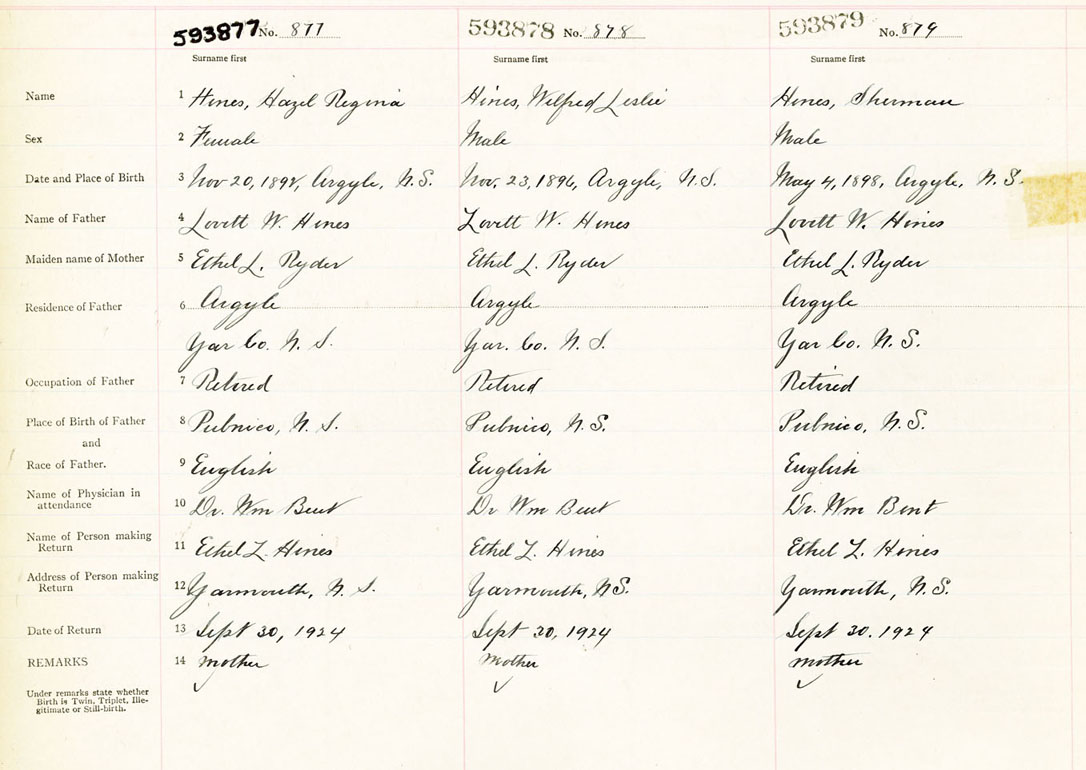 593877 No. 877 593878 No. 878 593879 No. 879
Surname first Surname first Surname first
Name 1 Hines, Hazel Regina Hines, Wilfred Leslie Hines, Sherman
Sex 2 Female Male Male
Date and Place of Birth 3 Nov 20, Argyle, N.S. Nov. 23, 1896, Argyle, N.S. May 4, 1898, Argyle, N.S.
Name of Father 4 Lovitt W. Hines Lovitt W. Hines Lovitt W. Hines
Maiden name of Mother 5 Ethel L. Ryder Ethel L. Ryder Ethel L. Ryder
Residence of Father 6 Argyle Argyle Argyle
Yar Co. N.S. Yar. Co. N.S. Yar Co. N.S.
Occupation of Father 7 Retired Retired Retired
Place of Birth of Father 8 Pubnico, N.S. Pubnico, N.S. Pubnico, N.S.
and
Race of Father. 9 English English English
Name of Physician in
attendance 10 Dr. Wm Bent Dr Wm Bent Dr. Wm Bent
Name of Person making
Return 11 Ethel L. Hines Ethel L. Hines Ethel L. Hines
Address of Person making
Return 12 Yarmouth, N.S. Yarmouth, N.S. Yarmouth, N.S.
Date of Return 13 Sept 30, 1924 Sept 30, 1924 Sept 30. 1924
REMARKS 14 mother mother mother
Under remarks state whether
Birth is Twin, Triplet, Ille-
gitimate or Still-birth.